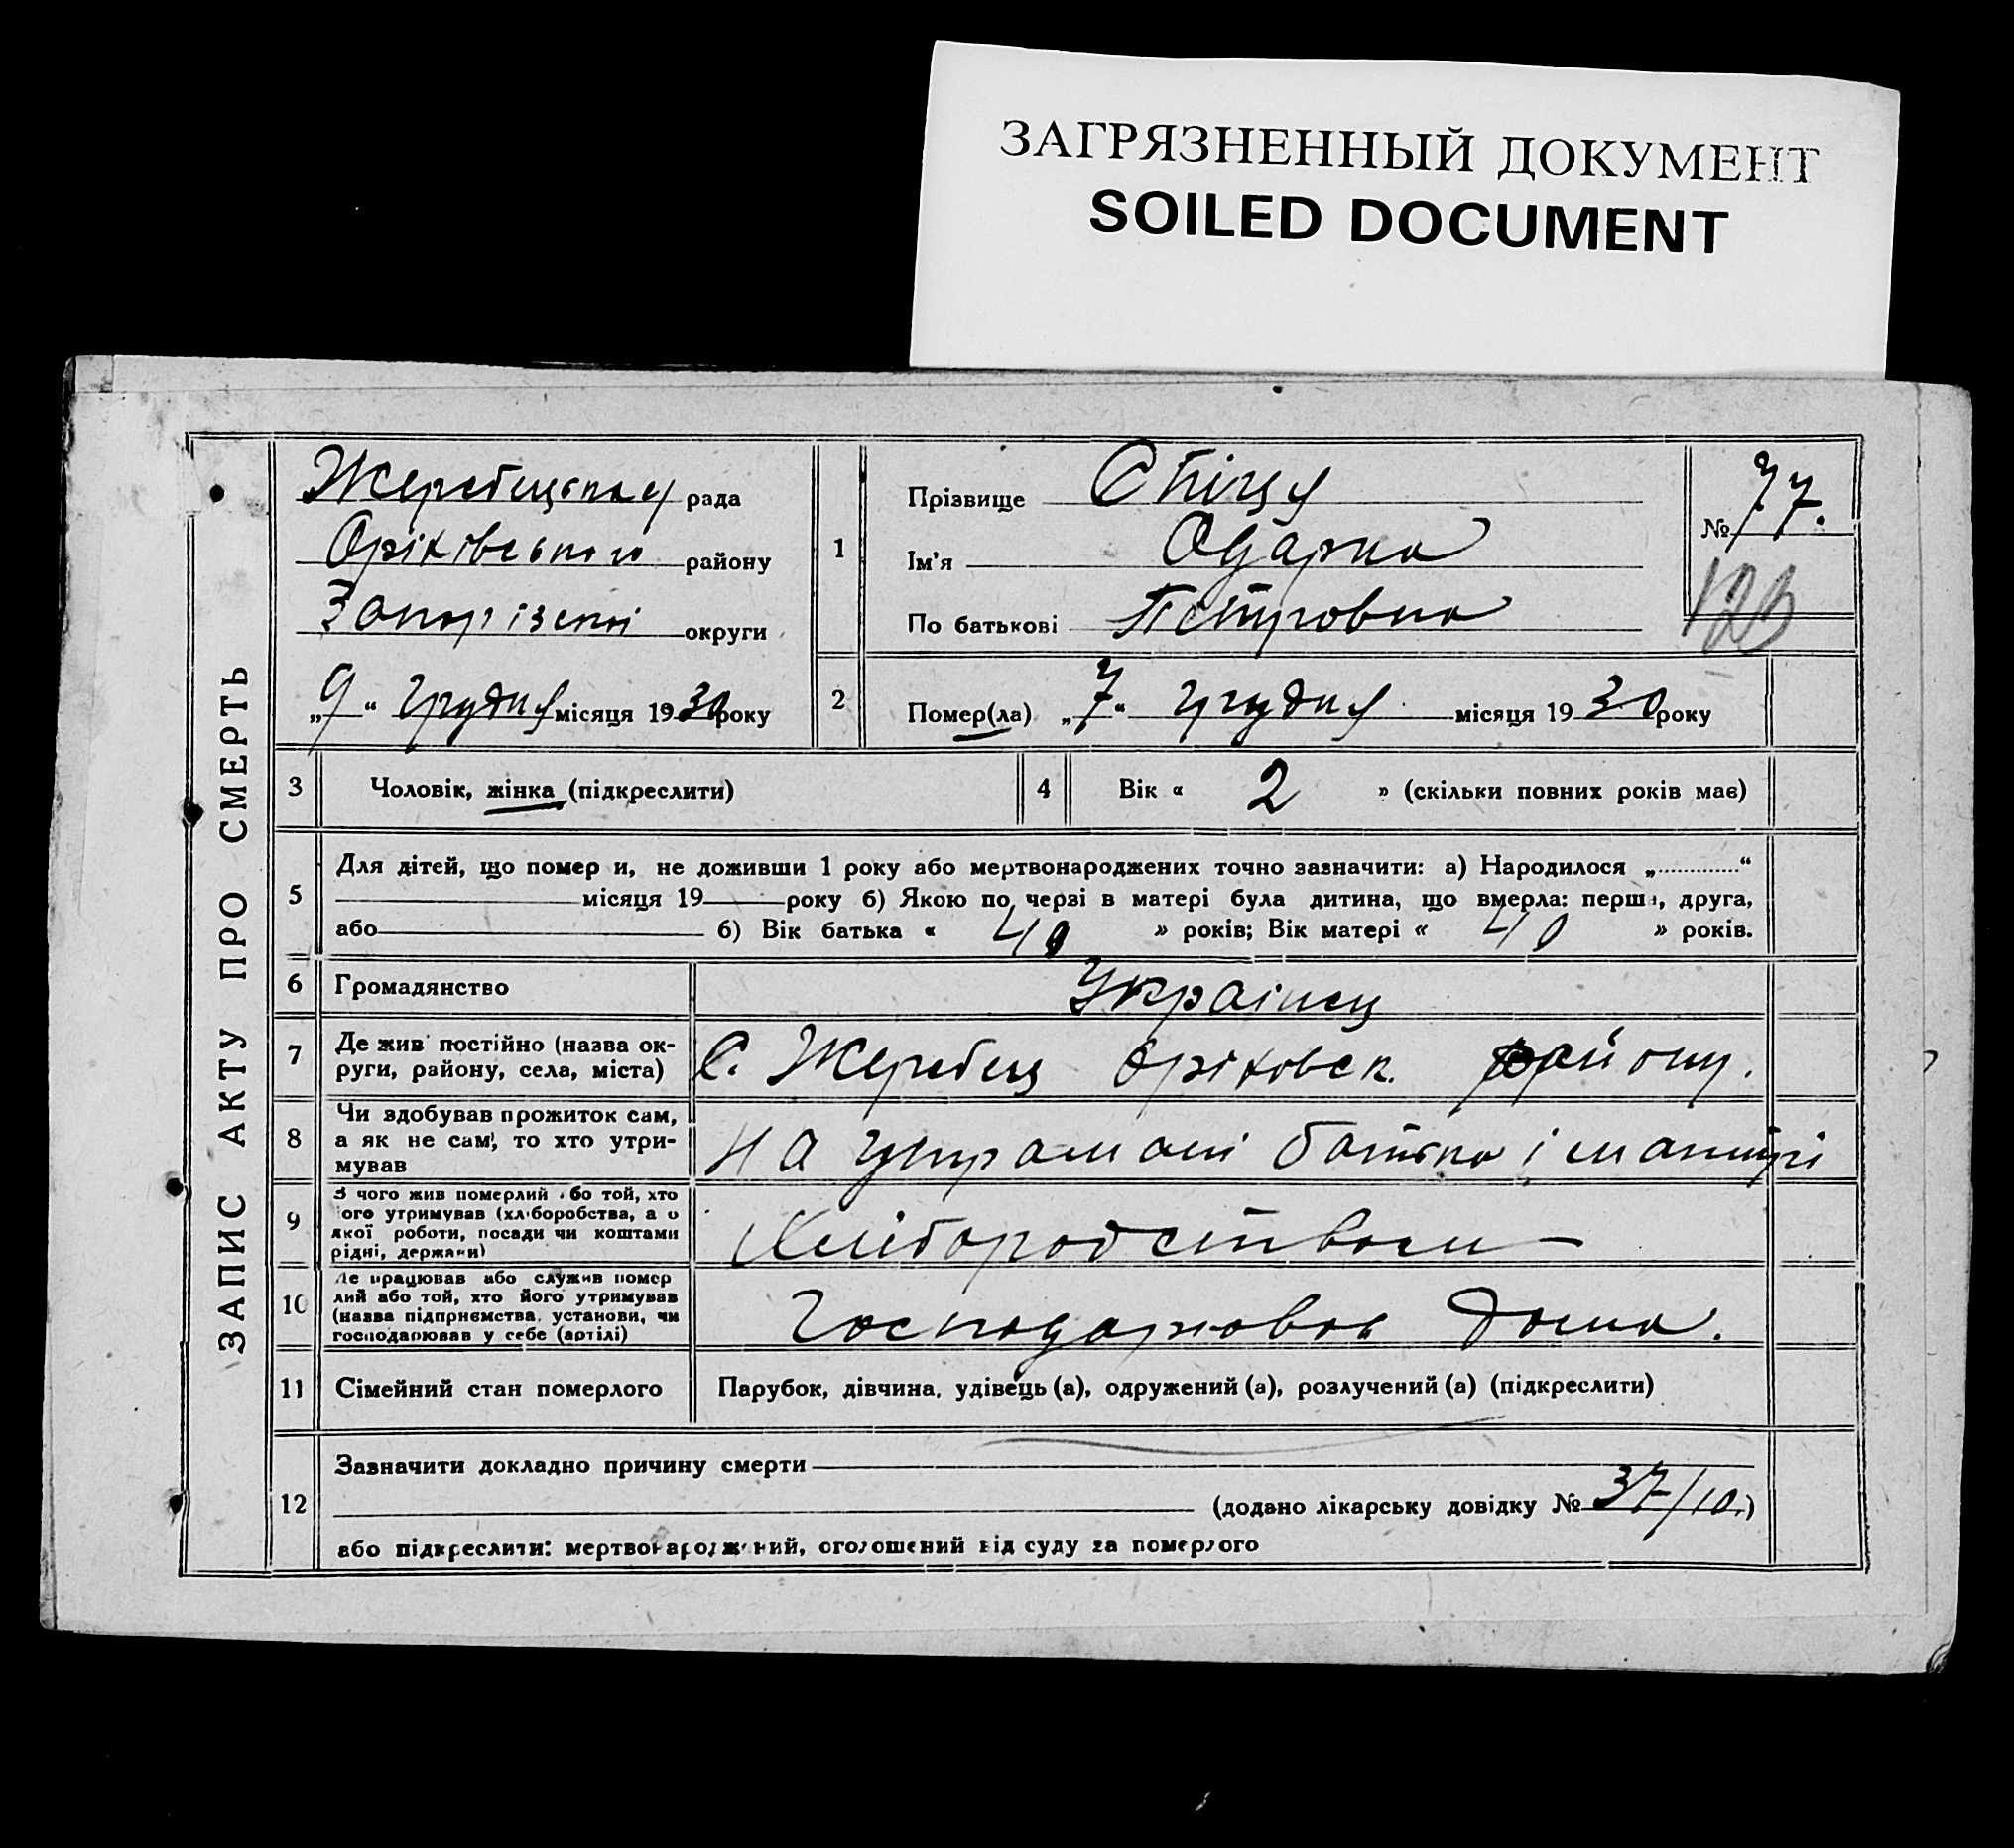 ЗАГРЯЗНЕННЫЙ ДОКУМЕНТ
SOILED DOCUMENT
ЗАПИС АКТУ ПРО СМЕРТЬ
Жеребецька рада
Оріхівського району
Запорізької округи
„9“ грудня місяця 1930 року
1
Прізвище Спіця
Ім'я Одарка
По батькові Петровна
№ 77.
123
2
Помер(ла) „7“ грудня місяця 1930 року
3 Чоловік, жінка (підкреслити)
4 Вік « 2 » (скільки повних років має)
5
Для дітей, що помер и, не доживши 1 року або мертвонароджених точно зазначити: а) Народилося „............“
місяця 19 року б) Якою по черзі в матері була дитина, що вмерла: перша, друга,
або б) Вік батька « 40 » років; Вік матері « 40 » років.
6 Громадянство Українец
7 Де жив постійно (назва ок-
руги, району, села, міста)
С. Жеребец Оріховск. району.
8 Чи здобував прожиток сам,
а як не сам, то хто утри-
мував
На утриманні батька і матері
9 З чого жив померлий або той, хто
його утримував (хліборобства, а о
якої роботи, посади чи коштами
рідні, держави)
Хліборобством
10 Де працював або служив помер
лий або той, хто його утримував
(назва підприємства, установи, чи
господарював у себе (артілі)
Господарював дома.
11 Сімейний стан померлого Парубок, дівчина, удівець (а), одружений (а), розлучений (а) (підкреслити)
12
Зазначити докладно причину смерти
(додано лікарську довідку № 37/10.)
або підкреслити: мертвонароджений, оголошений від суду за померлого